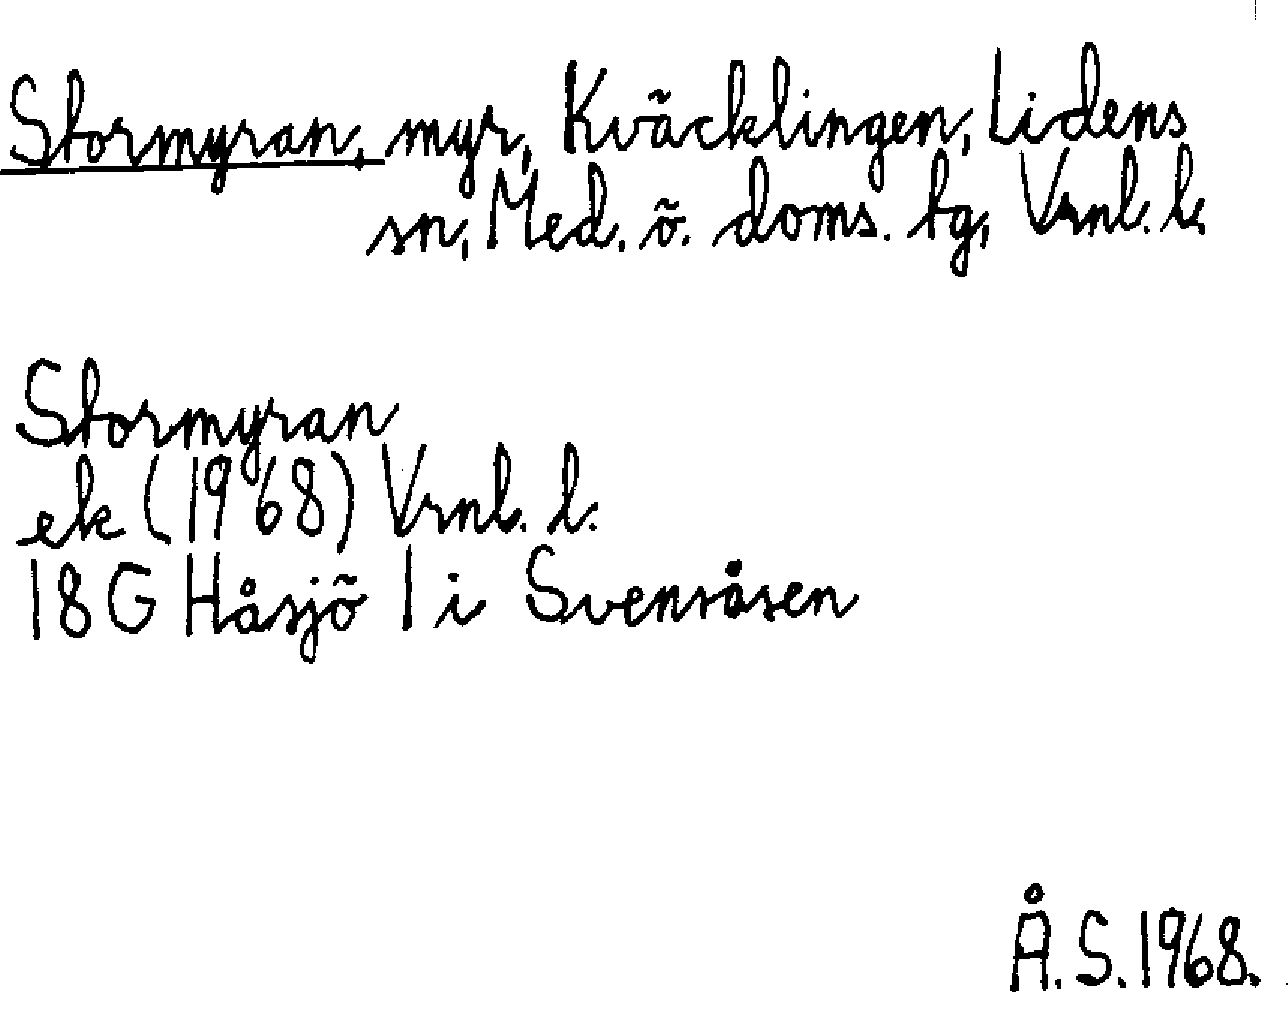 Stormyran, myr, Kväcklingen, Lidens
sn, Med. ö. doms. tg, Vrnl. l.
Stormyran
ek (1968) Vrnl. l.
18G Håsjö 1 i Svensåsen
Å.S. 1968.